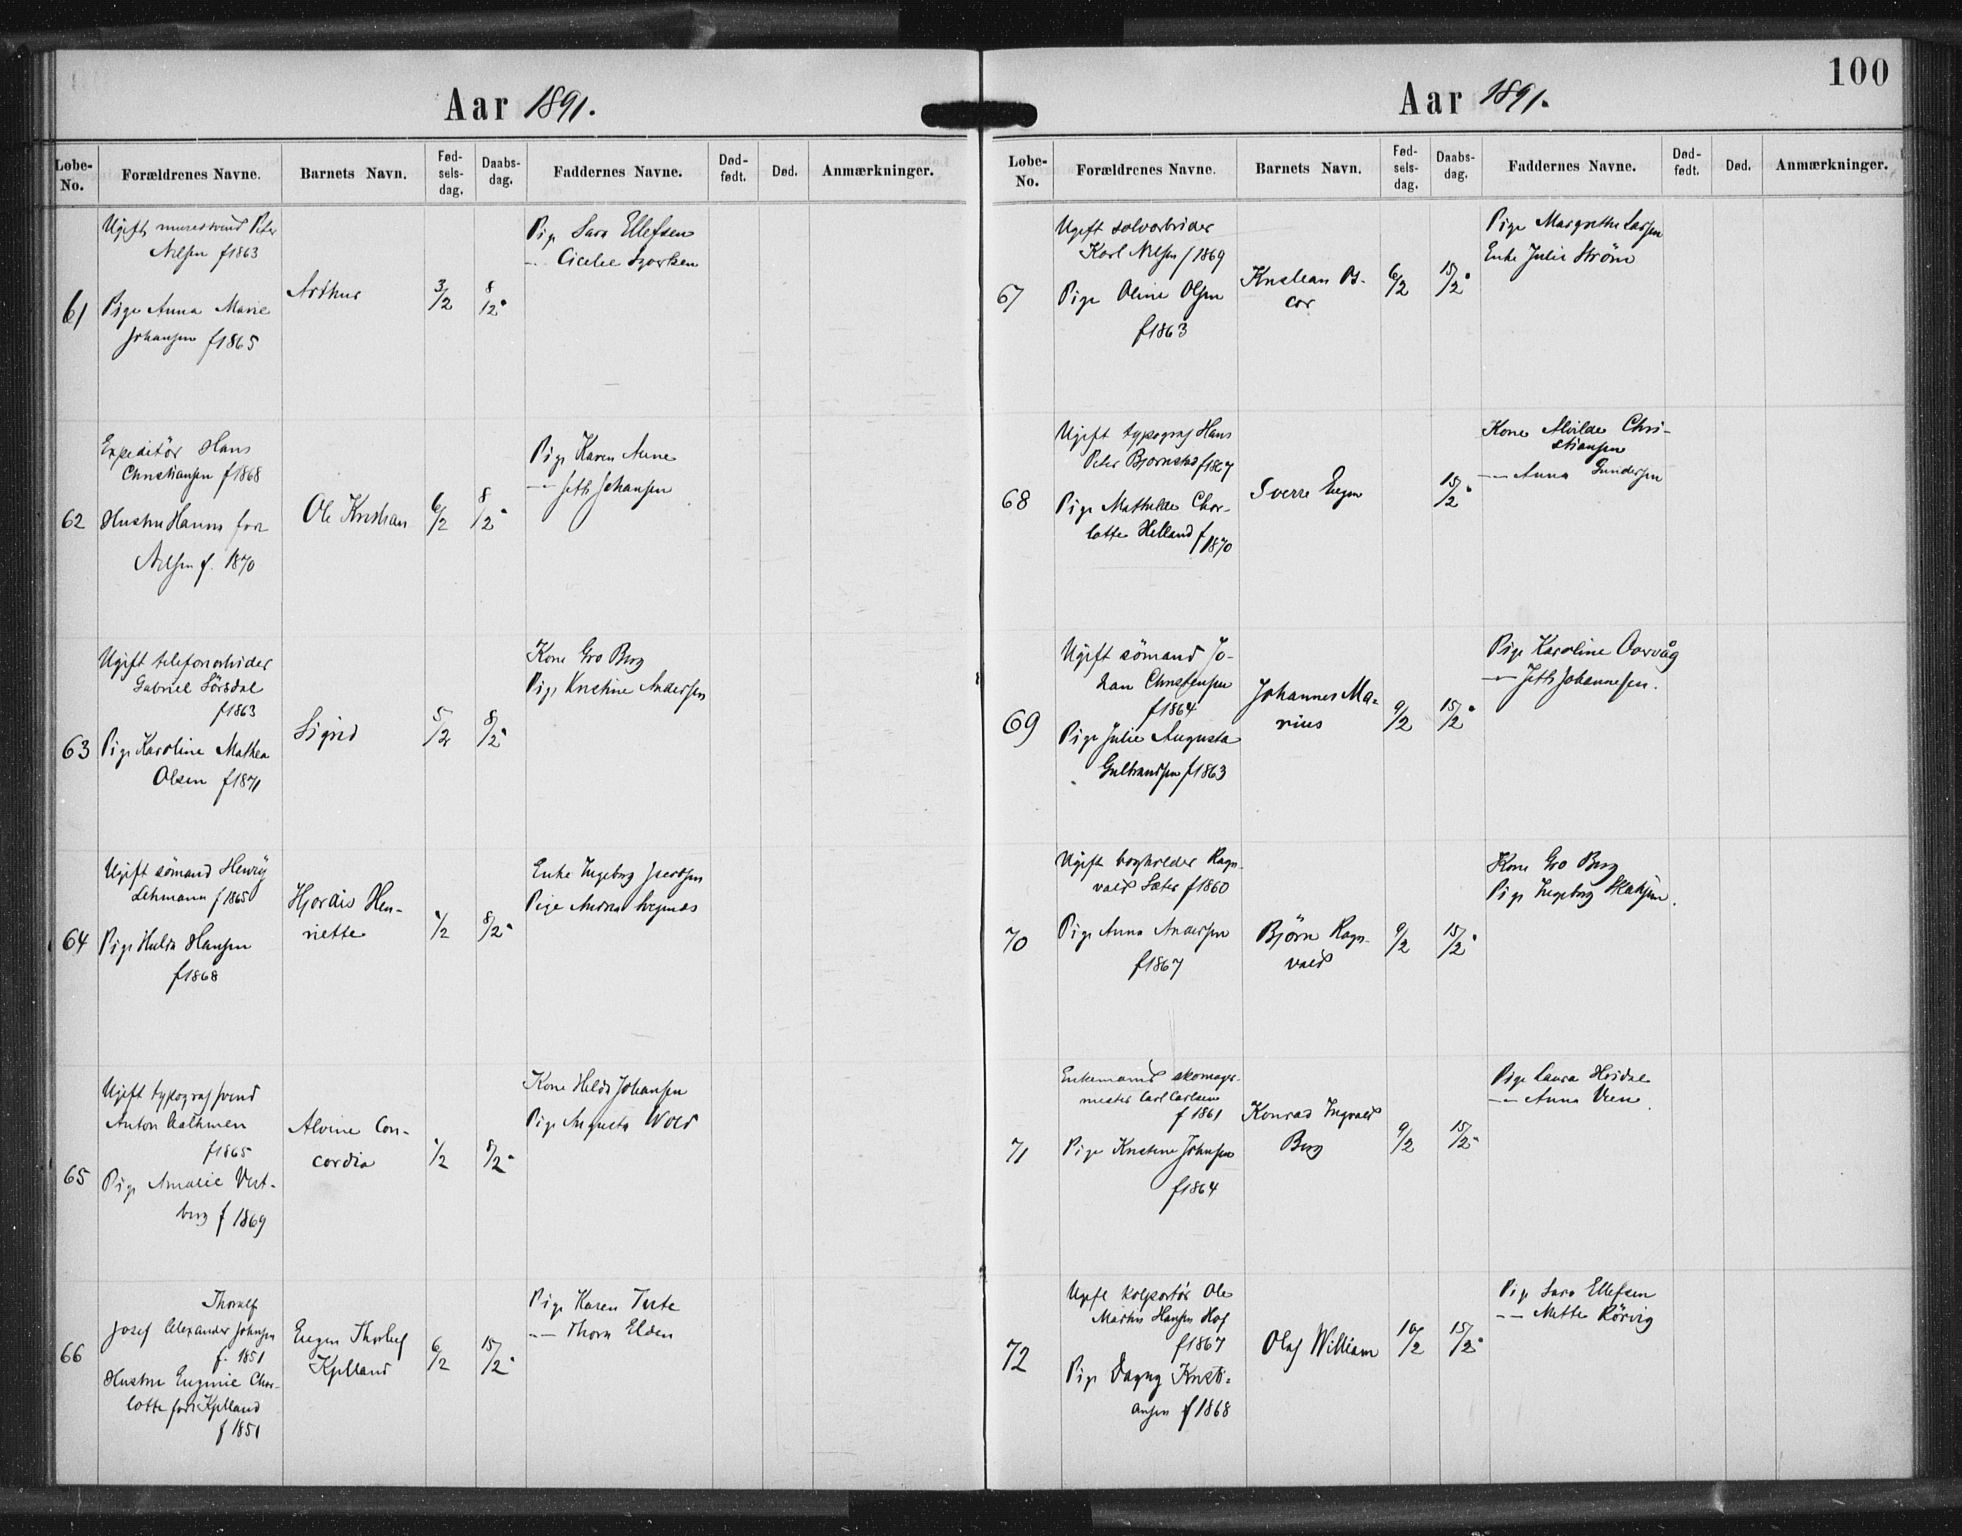 Aar 1891.
Løbe-No.
Forældrenes Navne.
Barnets Navn.
Fød-sels-dag.
Daabs-dag.
Faddernes Navne.
Død-født.
Død.
Anmærkninger.
61
Ugift murersvend Peter
Nilsen f1863
Pige Anna Marie
Johansen f1865
Arthur
3/2
8/2
Pige Sara Ellefsen
Cicilie
62
Expeditör Hans
Christiansen f1868
Hustru Hanna för
Nilsen f. 1870
Ole Kristian
6/2
8/2
Pige Karen Anne
— Jette Johansen
63
Ugift telefonarbider
Gabriel Sörsdal
f1863
Pige Karoline Mathea
Olsen f1871
Sigrid
5/2
8/2
Kone Gro Berg
Pige Kristine Andersen
64
Ugift sömand Henrÿ
Lehmann f1865
Pige Hulda Hansen
f1868
Hjordis Hen-
riette
1/2
8/2
Enke Ingeborg
Pige Andrea
65
Ugift typografsvend
Anton
f1865
Pige Amalie Vest-
berg f 1869
Alvine Con-
cordia
1/2
8/2
Kone Hilda Johansen
Pige Augusta Wold
66
Thoralf
Josef Alexander Johnsen
f. 1851
Hustru Eugenie Char-
lotte för Kjelland
f 1851
Eugen Thoralf
Kjelland
6/2
15/2
Pige Karen Tvete
— Thora Elden
100
Aar 1891.
Løbe-No.
Forældrenes Navne.
Barnets Navn.
Fød-sels-dag.
Daabs-dag.
Faddernes Navne.
Død-født.
Død.
Anmærkninger.
67
Ugift solvarbider
Karl Nilsen f1869
Pige Oline Olsen
f1863
Kristian Os-
car
6/2
15/2
Pige Margrethe Larsen
Enke Julie Ström
68
Ugift typograf Hans
Peter Bjornstad f1867
Pige Mathilde Char-
lotte Helland f
1870
Sverre Eugen
15/2
Kone Alvilde Chri-
stiansen
— Anna Gundersen
69
Ugift sömand Jo-
han Christensen
f1864
Pige Julie Augusta
Gulbrandsen f1863
Johannes Ma-
rius
9/2
15/2
Pige Karoline Aarvåg
— Jette Johannesen.
70
Ugift bogholder Ragn-
vald Sæter f1860
Pige Anna Andersen
f1867
Bjørn Ragn-
vald
9/2
15/2
Kone Gro Berg
Pige Ingeborg
71
Enkemand skomager-
mester Carl Carlsen
f 1861
Pige Kristine Johnsen
f1864
Konrad Ingvald
Berg
9/2
15/2
Pige Laura
— Anna
72
Ugift kolportör Ole
Martin Hansen Hof
f1867
Pige Dagny Kristi-
ansen f1868
Olaf William
10/2
15/2
Pige Sara Ellefsen
— Mette Rörvig